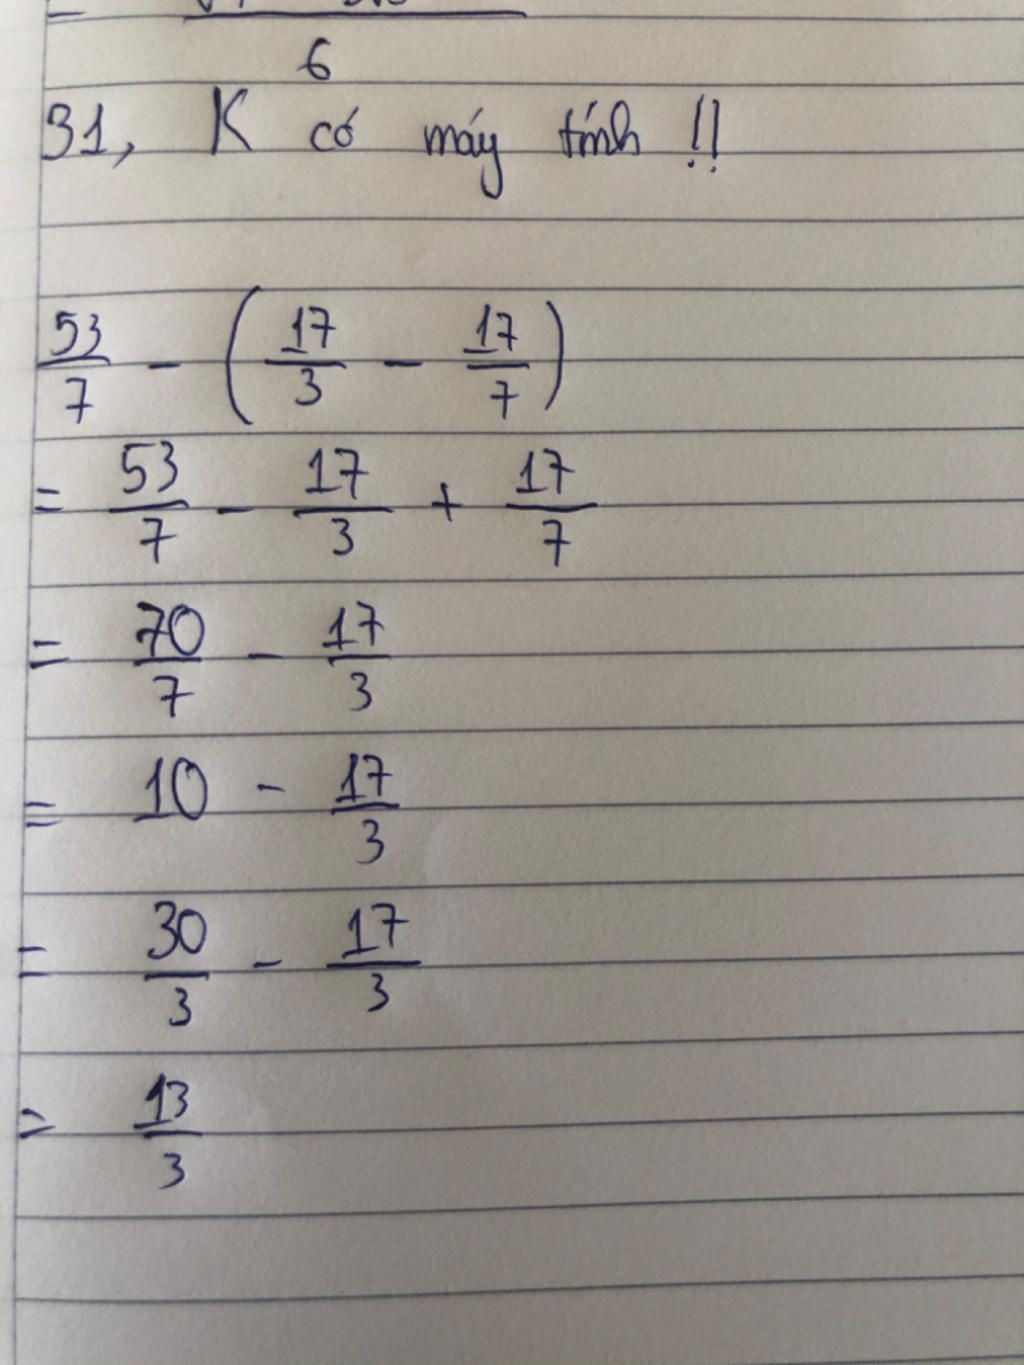 6
31, K có máy tính !!
53/7 - (17/3 - 17/7)
= 53/7 - 17/3 + 17/7
= 70/7 - 17/3
= 10 - 17/3
= 30/3 - 17/3
= 13/3